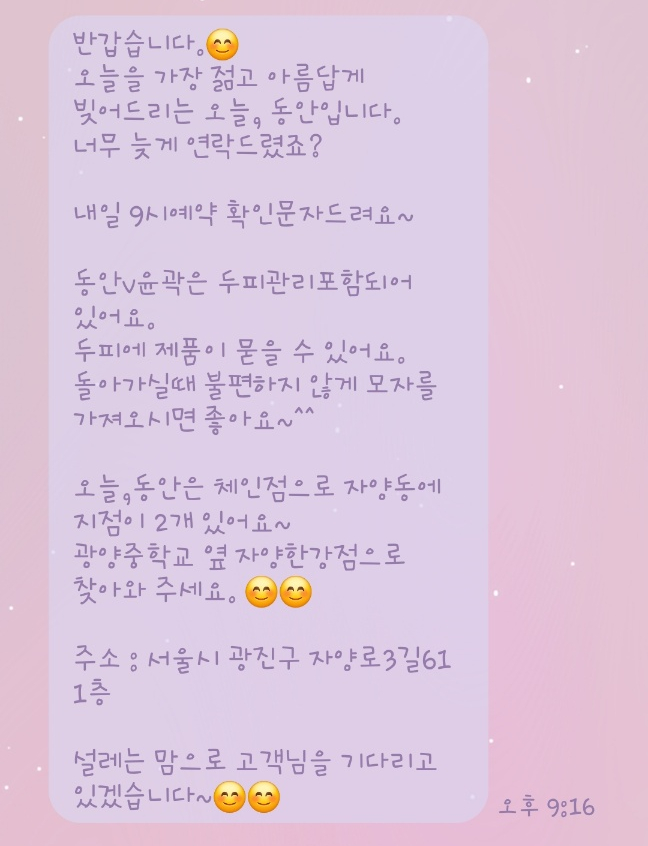 반갑습니다.😊
오늘을 가장 젊고 아름답게
빛어드리는 오늘, 동안입니다.
너무 늦게 연락드렸죠?
내일 9시예약 확인문자드려요~
동안v윤곽은 두피관리포함되어
있어요.
두피에 제품이 묻을 수 있어요.
돌아가실때 불편하지 않게 모자를
가져오시면 좋아요~^^
오늘,동안은 체인점으로 자양동에
지점이 2개 있어요~
광양중학교 옆 자양한강점으로
찾아와 주세요. 😊😊
주소 : 서울시 광진구 자양로3길61
1층
설레는 맘으로 고객님을 기다리고
있겠습니다~😊😊
오후 9:16